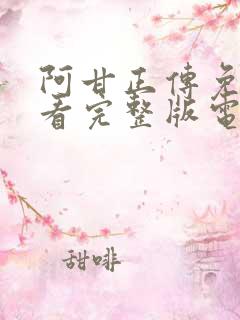 阿甘正傳免
看完整版電
甜啡